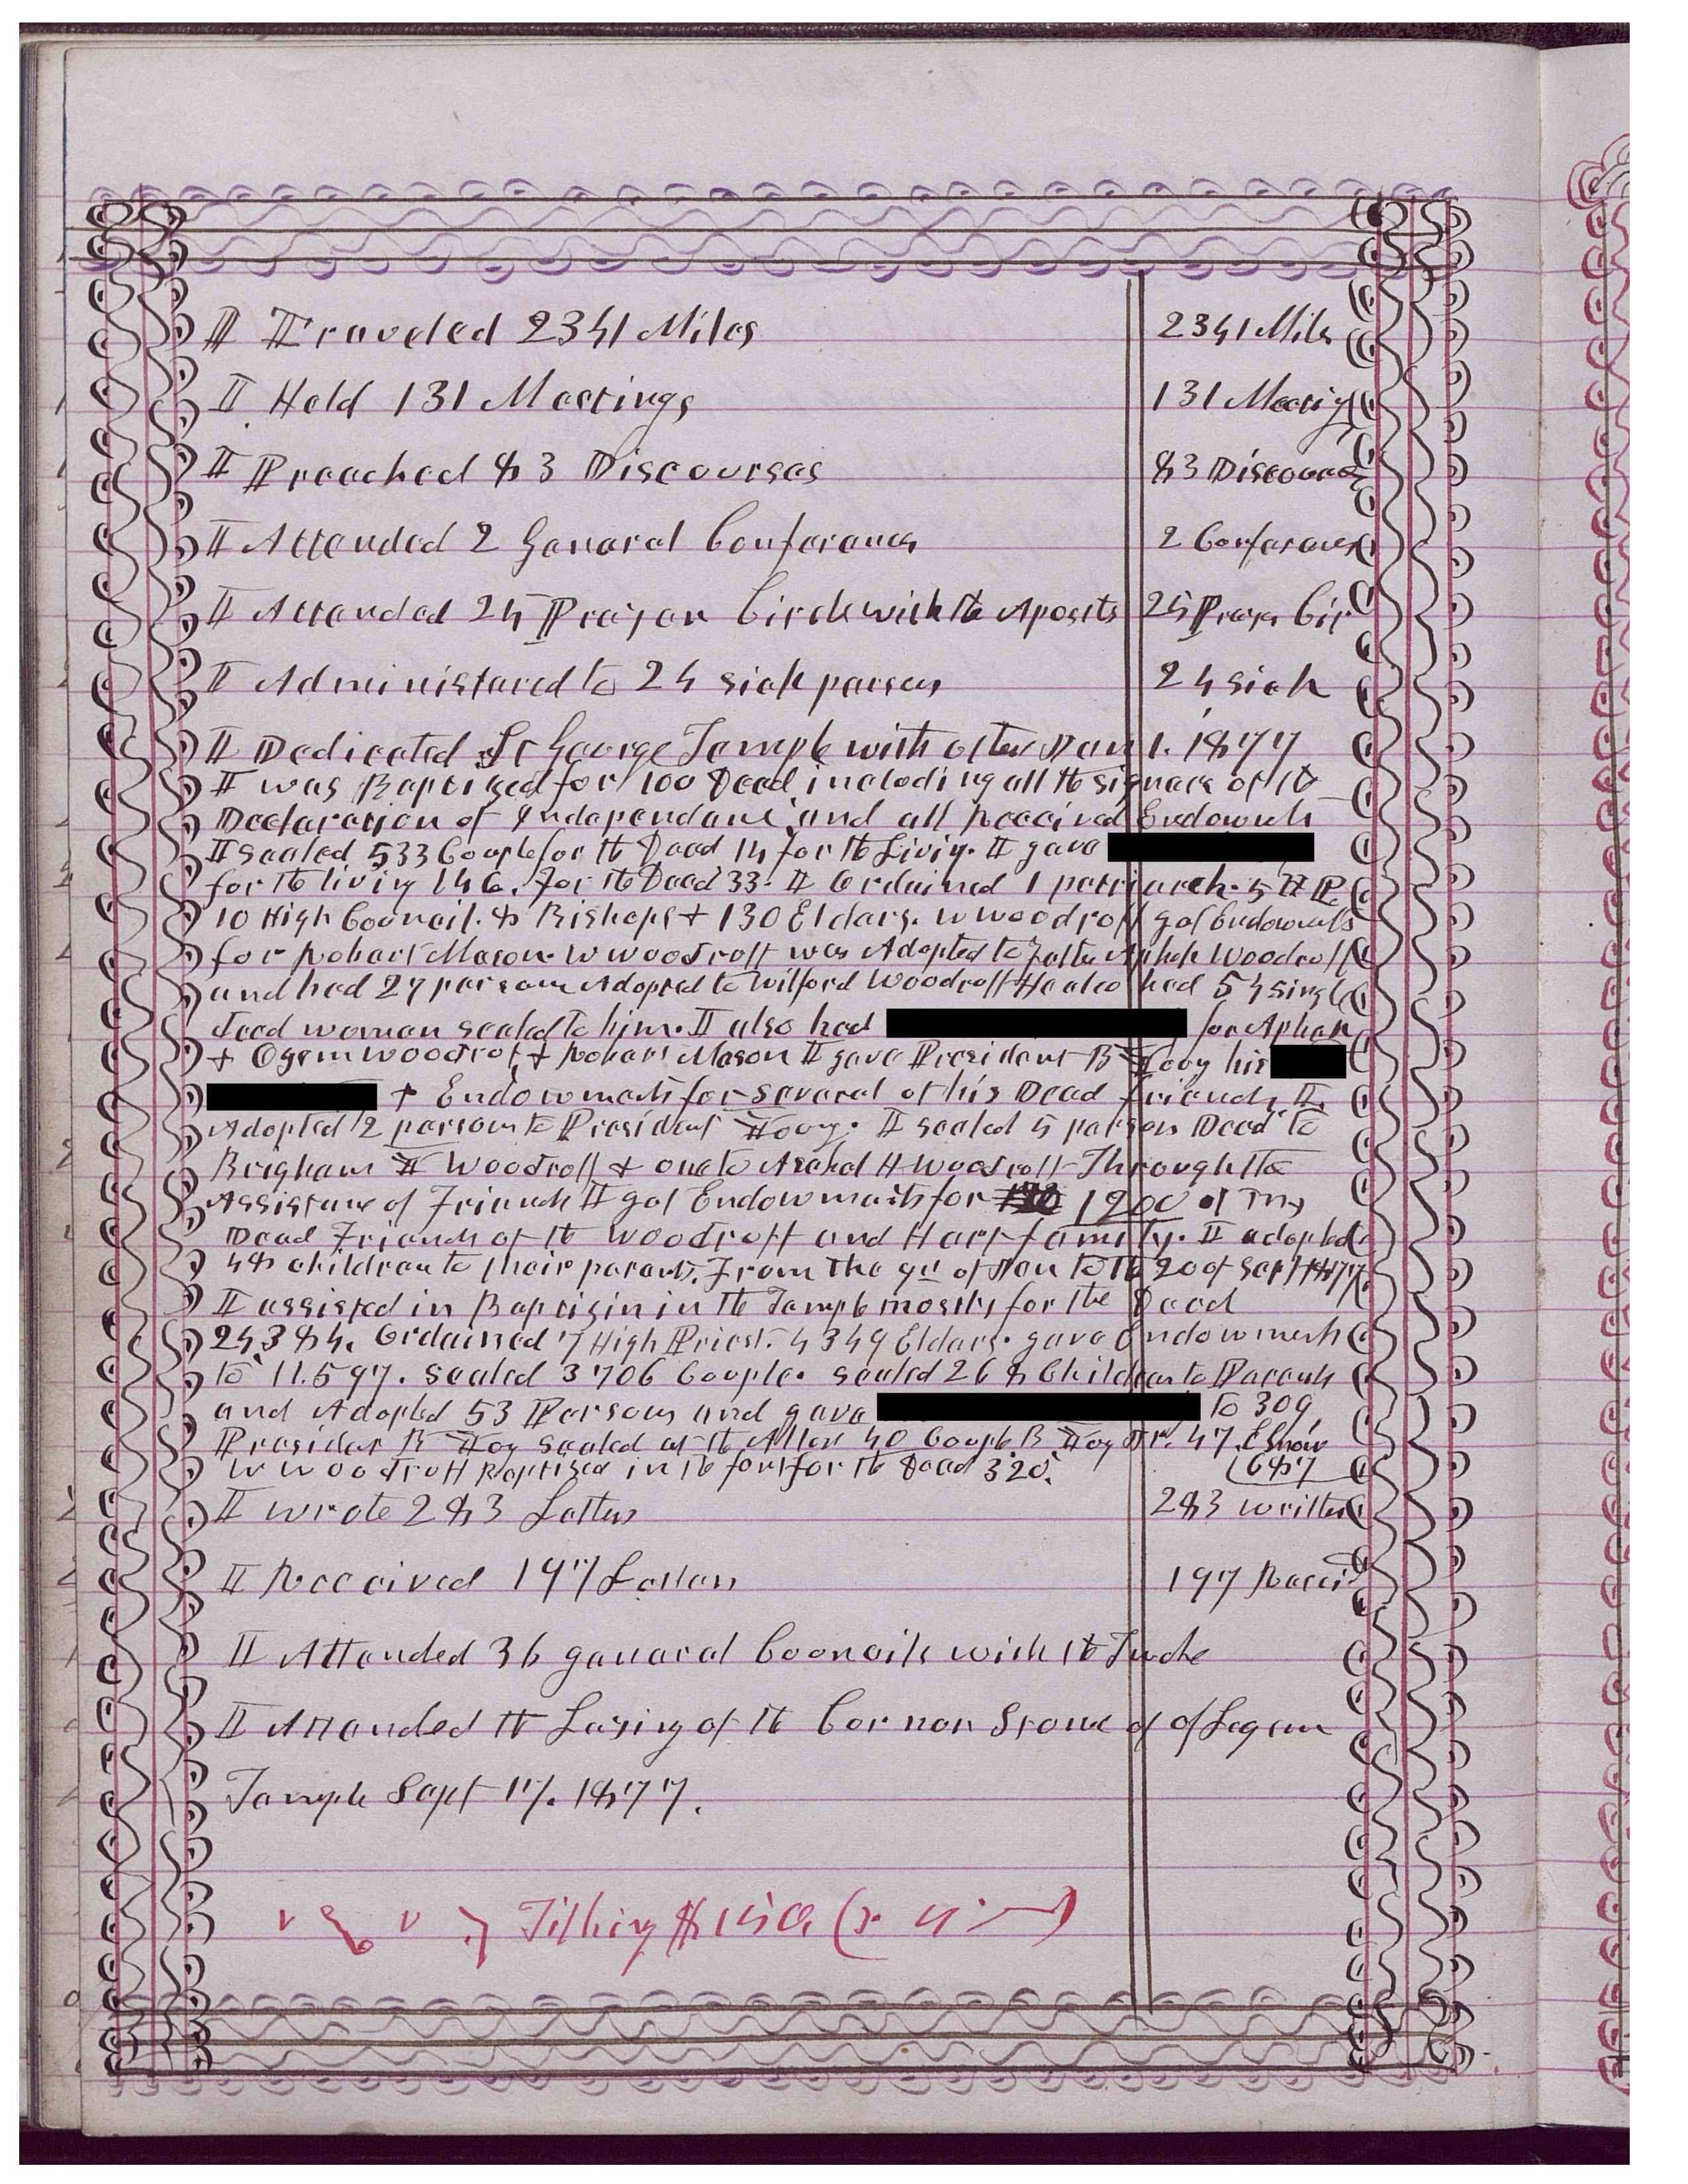 I Traveled 2341 Miles 2341 Miles
I Held 131 Meetings 131 Meetings
I Preached 83 Discourses 83 Discourses
I Attended 2 General Conferences 2 Conferences
I Attended 24 Prayer Circle with the Apostls 24 Prayer Cir
I Administered to 24 sick persons 24 sick
I Dedicated St George Temple with others Jan 1. 1877
I was Baptized for 100 Dead including all the signers of the
Declaration of Independance and all Received Endowmts
I sealed 533 Couple for the Dead 14 for the Living. I gave
for the living 146, for the Dead 33. I Ordained 1 patriarch. 5 H P.
10 High Council. 8 Bishops + 130 Elders. W Woodruff got Endowmts
for Robart Mason. W Woodruff was Adopted to Father Aphek Woodruff
and had 27 persons Adopted to Wilford Woodruff He also had 54 single
dead women sealed to him. I also had for Aphek
+ Ozem Woodruf, + Robart Mason I gave President B Young his
+ Endowments for several of his Dead friends, I
Adopted 2 persons to President Young. I sealed 5 persons Dead to
Brigham Y Woodruff + one to Asahel H Woodruff Through the
Assistance of Friends I got Endowments for 1200 of my
Dead Friends of the Woodruff and Hart family. I adopted
48 children to their parents. From the 9th of Jan to the 20 of Sept 1877
I assisted in Baptizin in the Temple mostly for the Dead
24384. Ordained 7 High Priest. 4349 Elders. gave Endowments
to 11.597. Sealed 3706 Couple. Sealed 268 Children to Parents
and Adopted 53 Persons and gave to 309,
President B Young Sealed at the Alter 40 Couple B Young Jr. 47. E Snow
W Woodruff Baptized in the font for the Dead 320. 687
I wrote 283 Letters 283 written
I Received 197 Letters 197 Recei
I Attended 36 general Councils with the Twelve
I Attended the Laying of the Corner Stone of of Logan
Temple Sept 17. 1877.
Tithing